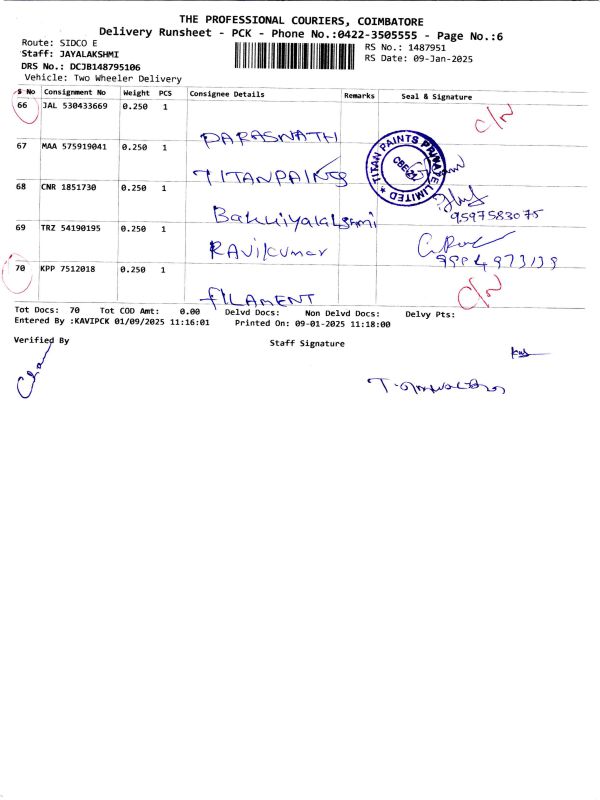 THE PROFESSIONAL COURIERS, COIMBATORE
Delivery Runsheet - PCK - Phone No.:0422-3505555 - Page No.:6
Route: SIDCO E
RS No.: 1487951
Staff: JAYALAKSHMI
RS Date: 09-Jan-2025
DRS No.: DCJB148795106
Vehicle: Two Wheeler Delivery
S No Consignment No Weight PCS Consignee Details Remarks Seal & Signature
66 JAL 530433669 0.250 1
C/N
PARASNATH
67 MAA 575919041 0.250 1
TITAN PAINTS PRIVATE LIMITED
TITANPAINTS
68 CNR 1851730 0.250 1
9597583075
Bakkiyalakshmi
69 TRZ 54190195 0.250 1
Ravikumar
70 KPP 7512018 0.250 1
C/N
FILAMENT
Tot Docs: 70 Tot COD Amt: 0.00 Delvd Docs: Non Delvd Docs: Delvy Pts:
Entered By :KAVIPCK 01/09/2025 11:16:01 Printed On: 09-01-2025 11:18:00
Verified By
Staff Signature